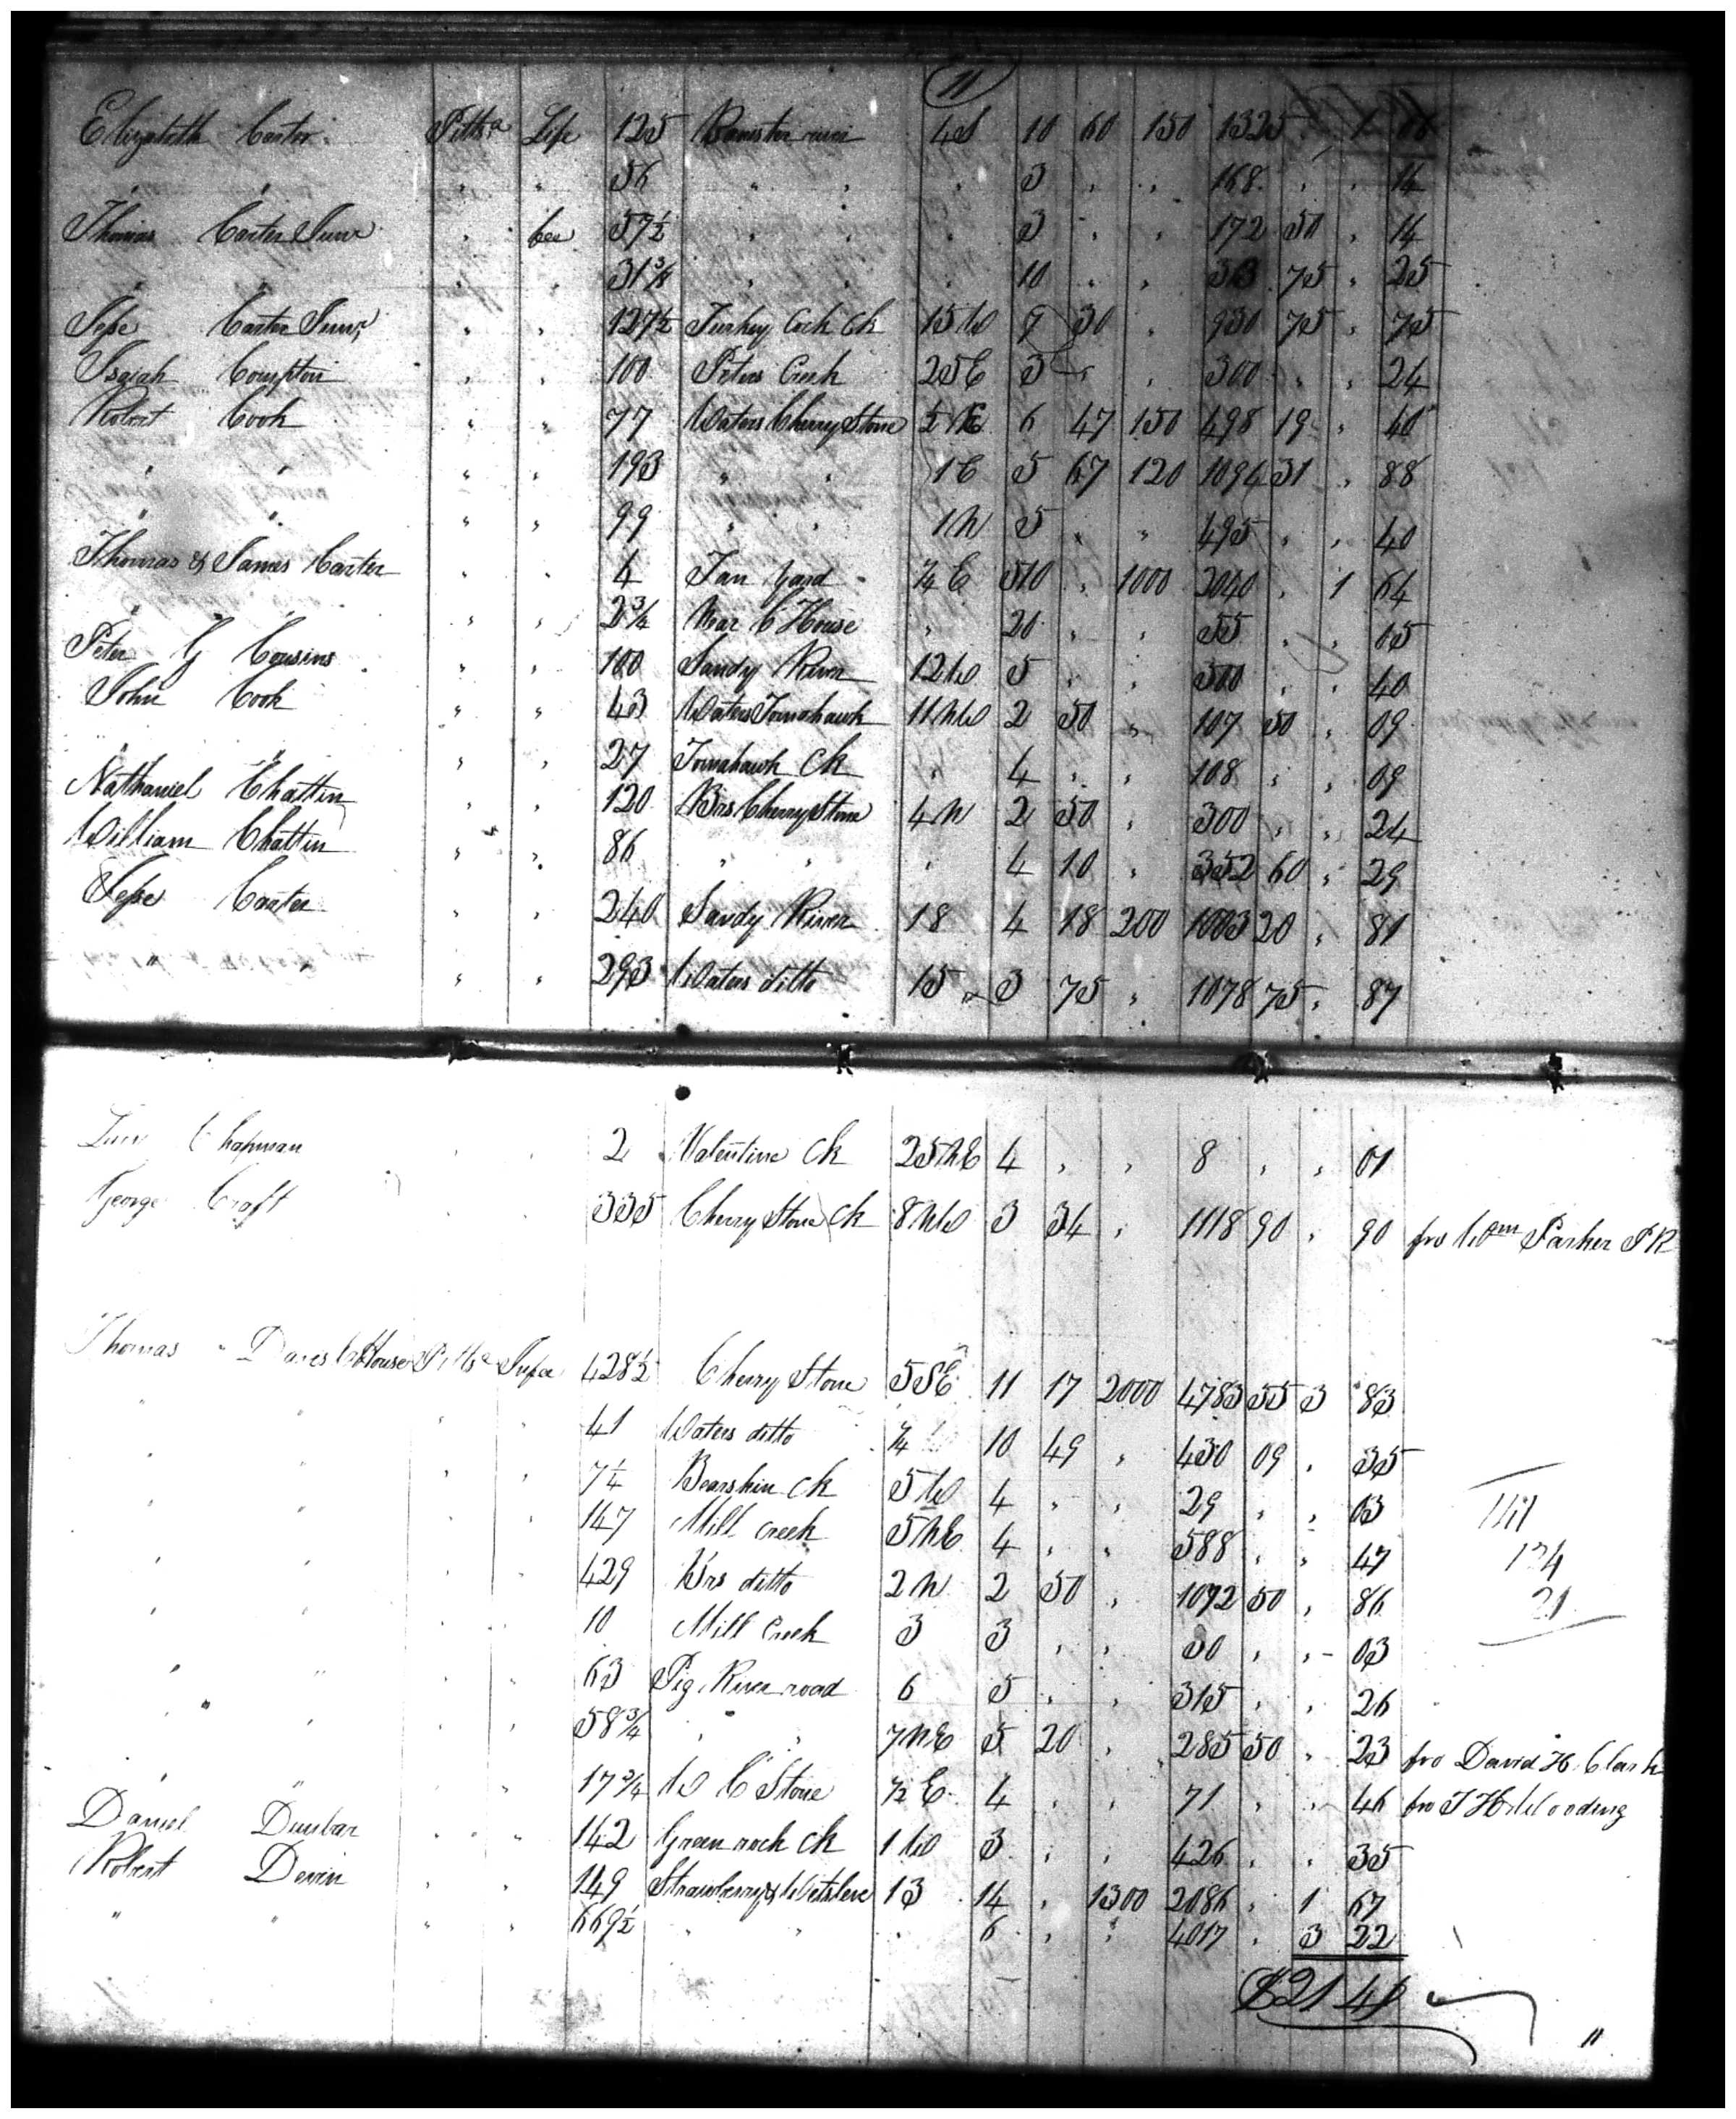 11
Elizabeth Carter Pittsa Life 125 Banister river 4S 10 60 150 1325 " 1 06
" " " " 56 " " " 3 " " 168 " " 14
Thomas Carter Junr " fee 57½ " " " 3 " " 172 50 " 14
" " " " 31⅜ " " " 10 " " 313 75 " 25
Jesse Carter Junr " " 127½ Turkey Cock Ck 15W 7 30 " 930 75 " 75
Isaiah Compton " " 100 Peters Creek 25E 3 " " 300 " " 24
Robert Cook " " 77 Waters Cherry Stone 2NE 6 47 150 498 19 " 40
" " " " 193 " " 1E 5 67 120 1094 31 " 88
" " " " 99 " " 1N 5 " " 495 " " 40
Thomas & James Carter " " 4 Tan Yard ¼E 510 " 1000 2040 " 1 64
" " " " 2¾ Near C House " 20 " " 55 " " 05
Peter G Cousins " " 100 Sandy River 12W 5 " " 500 " " 40
John Cook " " 43 Waters Tomahawk 11NW 2 50 " 107 50 " 09
" " " " 27 Tomahawk Ck " 4 " " 108 " " 09
Nathaniel Chattin " " 120 Brs Cherry Stone 4N 2 50 " 300 " " 24
William Chattin " " 86 " " " 4 10 " 352 60 " 29
Jesse Carter " " 240 Sandy River 18 4 18 200 1003 20 " 81
" " " " 293 Waters ditto 15 3 75 " 1078 75 " 87
Chapman " " 2 Valentine Ck 25NE 4 " " 8 " " 01
George Craft " " 335 Cherry Stone Ck 8NW 3 34 " 1118 90 " 90 fro Wm Parker PR
Thomas Davis C House Pittsa Supa 428½ Cherry Stone 5SE 11 17 2000 4783 55 3 83
" " " " 41 Waters ditto ¼ 10 49 " 430 09 " 35
" " " " 7¼ Bearskin Ck 5W 4 " " 29 " " 03
" " " " 147 Mill Creek 5NE 4 " " 588 " " 47
" " " " 429 Brs ditto 2N 2 50 " 1072 50 " 86
" " " " 10 Mill Creek 3 3 " " 30 " " 03
" " " " 63 Pig River road 6 5 " " 315 " " 26
" " " " 58¾ " " 7NE 5 20 " 285 50 " 23 fro David H. Clark
" " " " 17¾ W C Stone ½E 4 " " 71 " " 46 fro T H Wooding
Daniel Dunbar " " 142 Green rock Ck 1W 3 " " 426 " " 35
Robert Devin " " 149 Strawberry & 13 14 " 1300 2086 " 1 67
" " " " 669½ " " " 6 " " 4017 " 3 22
$21 41
11